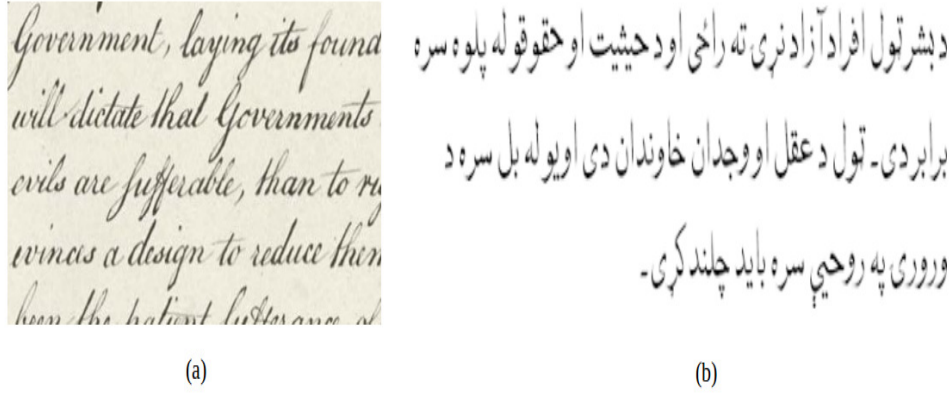 Government, laying its found
will dictate that Governments
evils are sufferable, than to ri
evinces a design to reduce them
been the patient sufferance of
(a)
د بشر ټول افراد آزاد نړۍ ته راځي او د حيثيت او حقوقو له پلوه سره
برابر دي۔ ټول د عقل او وجدان خاوندان دي او يو له بل سره د
ورورۍ په روحيې سره بايد چلند کړي۔
(b)